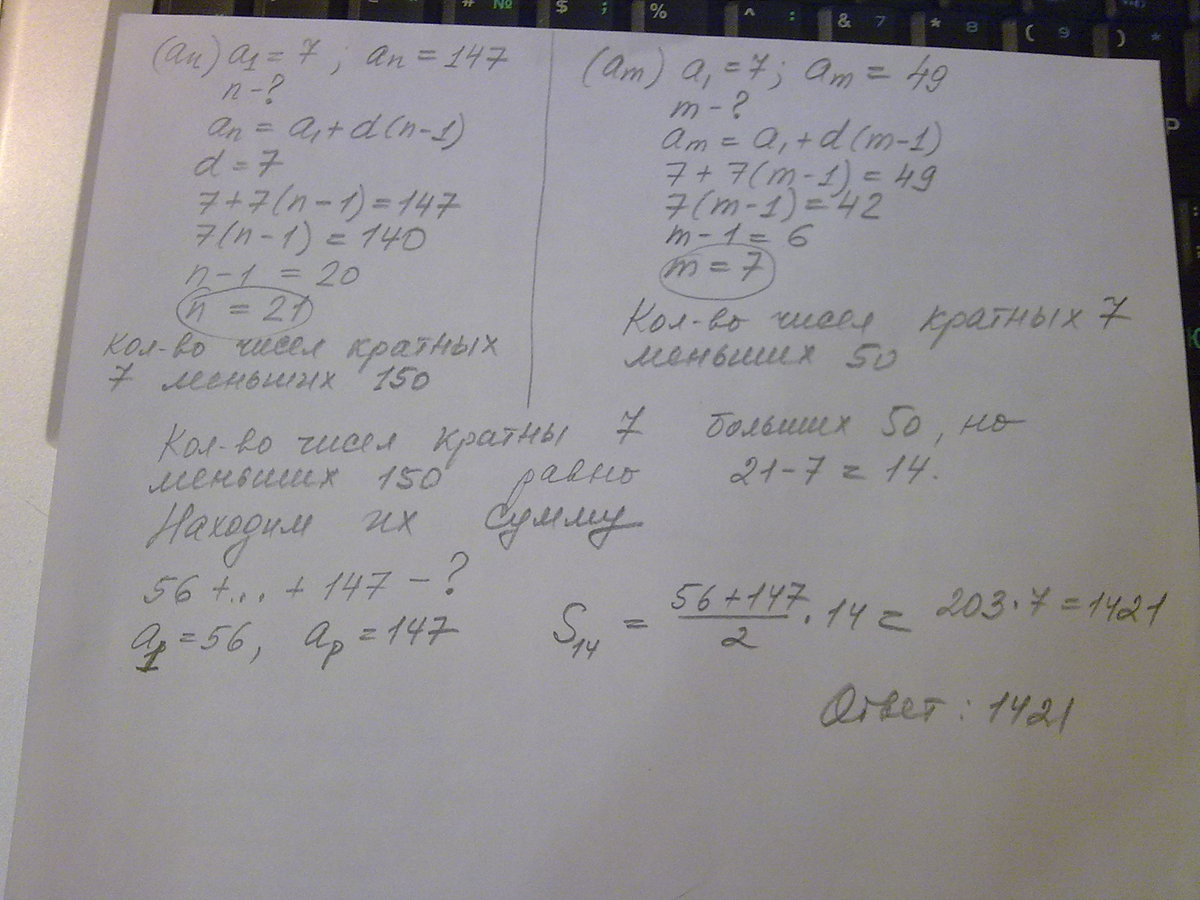 (an) a1 = 7 ; an = 147
n - ?
an = a1 + d(n-1)
d = 7
7 + 7(n-1) = 147
7(n-1) = 140
n-1 = 20
n = 21
Кол-во чисел кратных
7 меньших 150
(am) a1 = 7; am = 49
m - ?
am = a1 + d(m-1)
7 + 7(m-1) = 49
7(m-1) = 42
m-1 = 6
m = 7
Кол-во чисел кратных 7
меньших 50
Кол-во чисел кратны 7 больших 50, но
меньших 150 равно 21-7 = 14.
Находим их сумму
56 + ... + 147 - ?
a1 = 56, ap = 147
S14 = (56+147)/2 · 14 = 203 · 7 = 1421
Ответ: 1421
# №
$ ;
%
^ :
& 7
* 8
( 9
) *
P